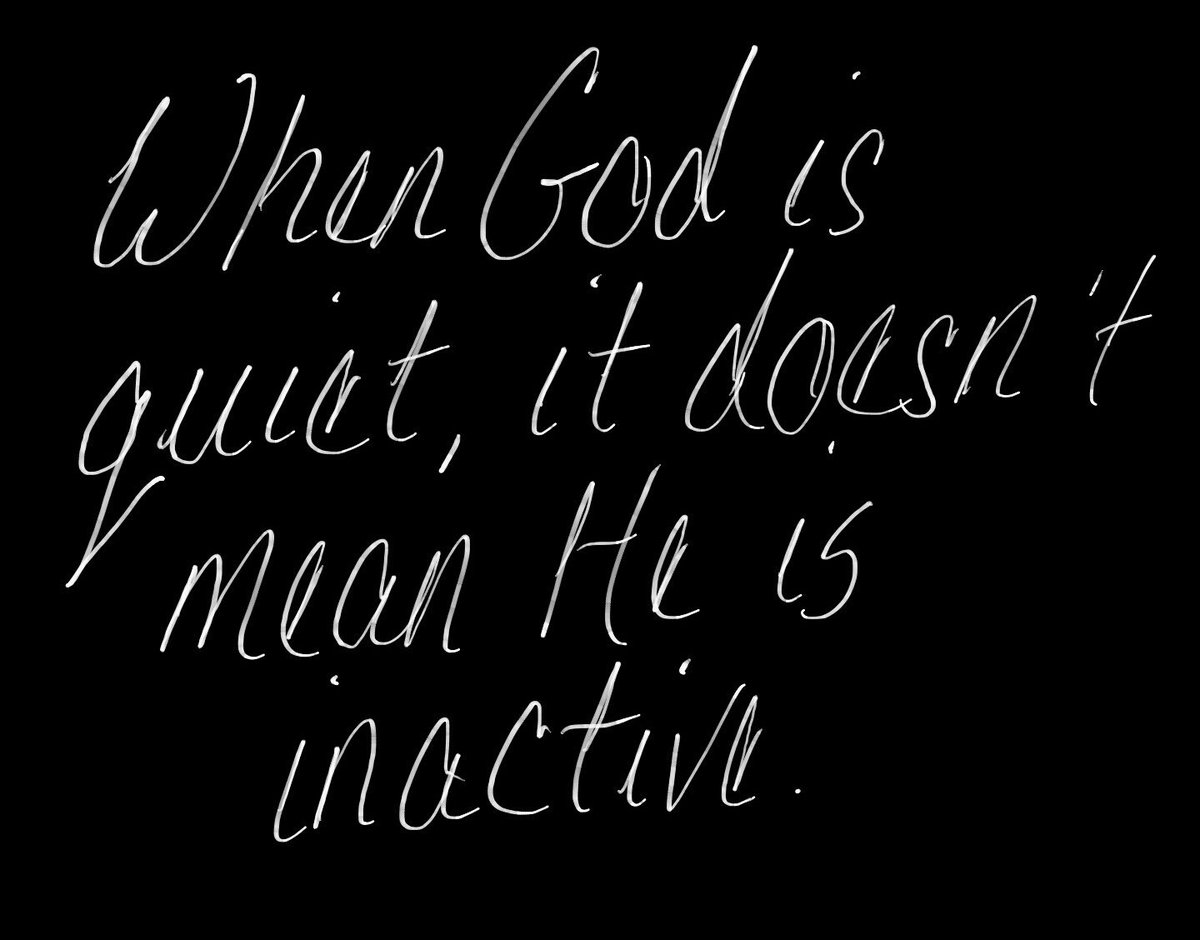 When God is
quiet, it doesn't
mean He is
inactive.